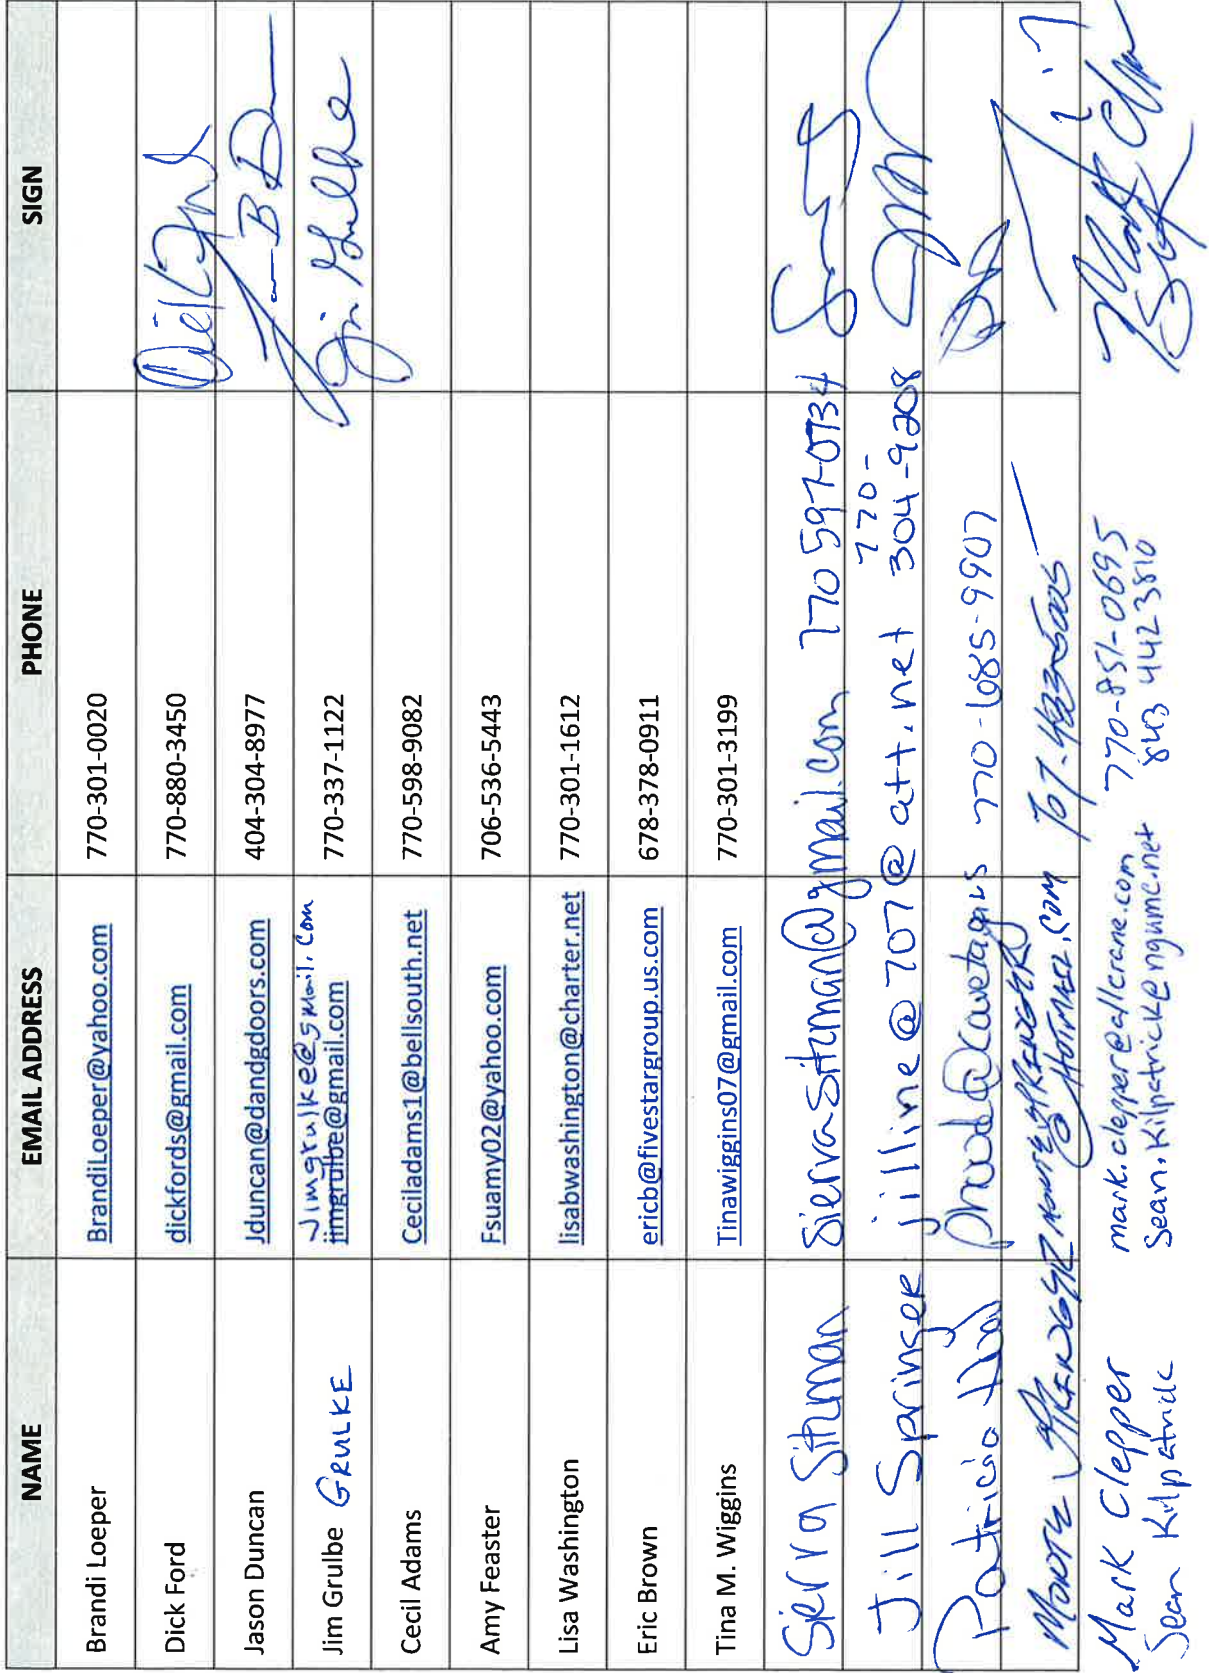 NAME EMAIL ADDRESS PHONE SIGN
Brandi Loeper BrandiLoeper@yahoo.com 770-301-0020
Dick Ford dickfords@gmail.com 770-880-3450
Jason Duncan Jduncan@dandgdoors.com 404-304-8977
Jimgrulke@gmail.com
Jim Grulbe GRULKE jimgrulbe@gmail.com 770-337-1122 Jim Grulke
Cecil Adams Ceciladams1@bellsouth.net 770-598-9082
Amy Feaster Fsuamy02@yahoo.com 706-536-5443
Lisa Washington lisabwashington@charter.net 770-301-1612
Eric Brown ericb@fivestargroup.us.com 678-378-0911
Tina M. Wiggins Tinawiggins07@gmail.com 770-301-3199
Sierra Sitzman SierraSitzman@gmail.com 770 597-0734
Jill Springer jilline@707@att.net 770-304-9208
Patricia 770-685-9907
Monte @HOTMAIL.COM 707-
Mark Clepper mark.clepper@allcrane.com 770-851-0695 Mark
Sean Kilpatrick Sean.Kilpatrick@ngumc.net 843 442 3810